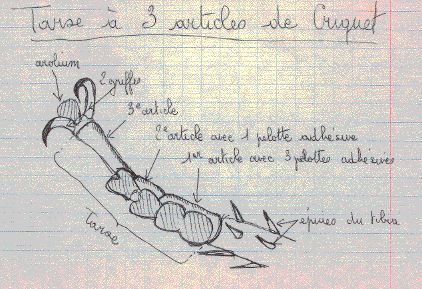 Tarse à 3 articles de Criquet
arolium
2 griffes
3e article
2e article avec 1 pelotte adhésive
1er article avec 3 pelottes adhésives
épines du tibia
Tarse